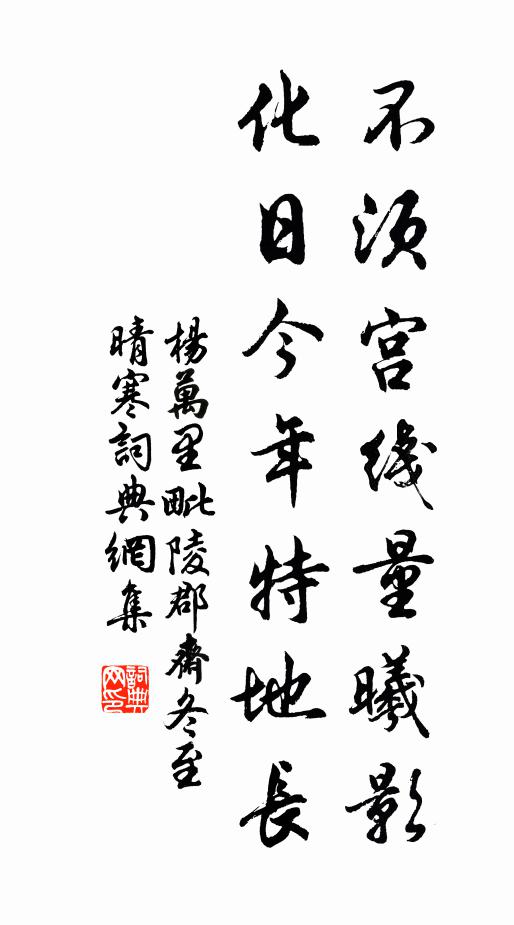 不须宫线量曦影
化日今年特地長
楊萬里毗陵郡齋冬至
晴寒詞典網集
詞典
网印